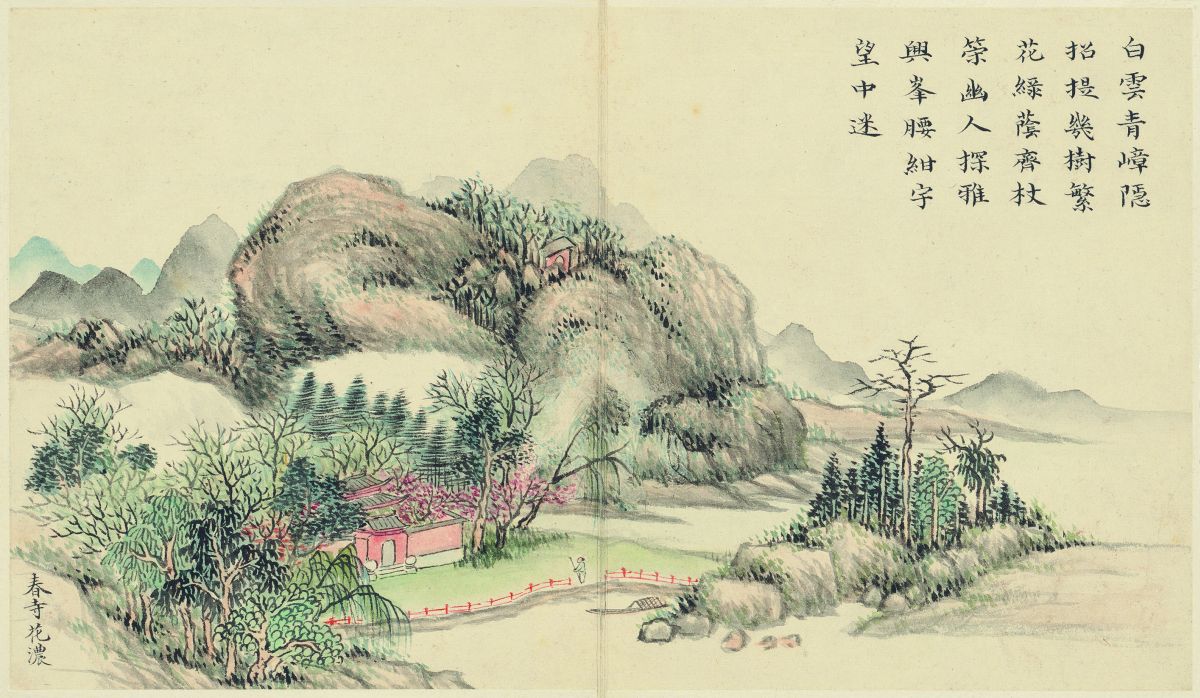 白雲青嶂隠
招提幾樹繁
花綠蔭齊杖
策幽人探雅
興峯腰紺宇
望中迷
春寺花濃